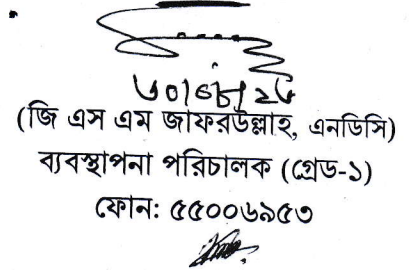 (জি এস এম জাফরউল্লাহ, এনডিসি)
ব্যবস্থাপনা পরিচালক (গ্রেড-১)
ফোন: ৫৫০০৬৯৫৩